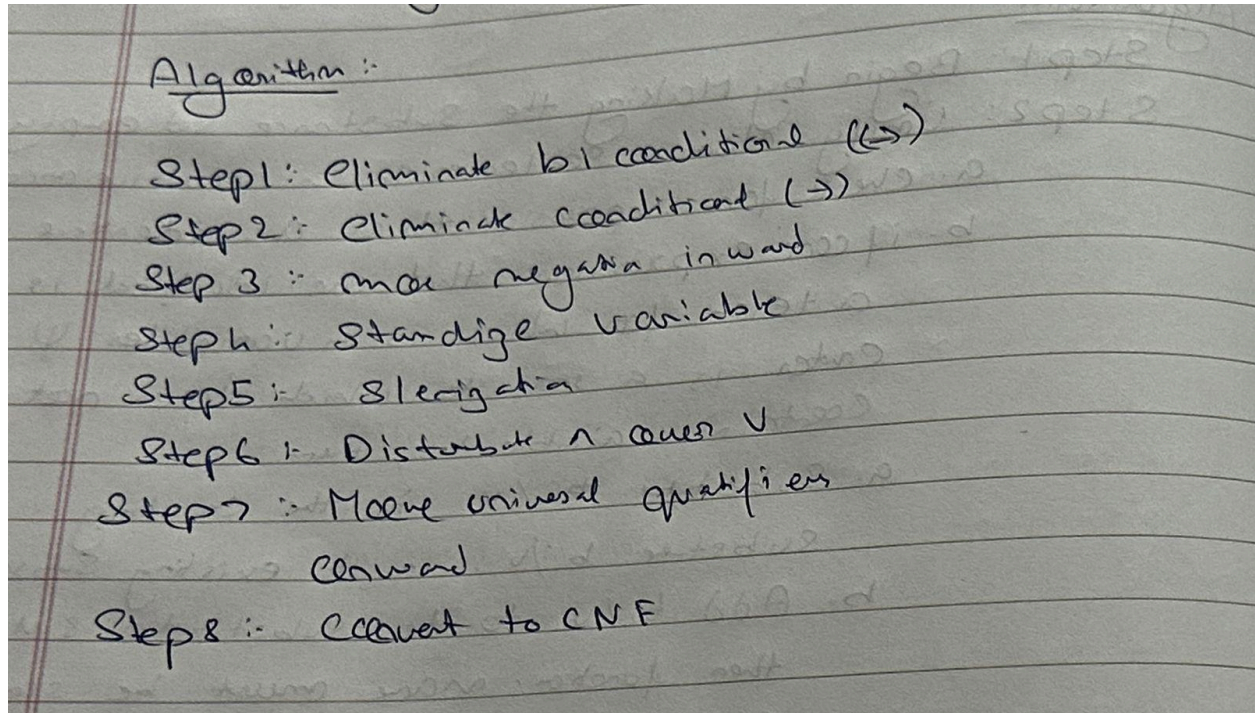 Algorithm :-
Step1: Eliminate bi conditional (↔)
Step2 :- Eliminate conditional (→)
Step 3 :- move negation inward
Step 4 :- Standize variable
Step5 :-
Step6 :- Distribute ∧ over ∨
Step7 :- Move universal quatifiers
Step8 :- Convert to CNF